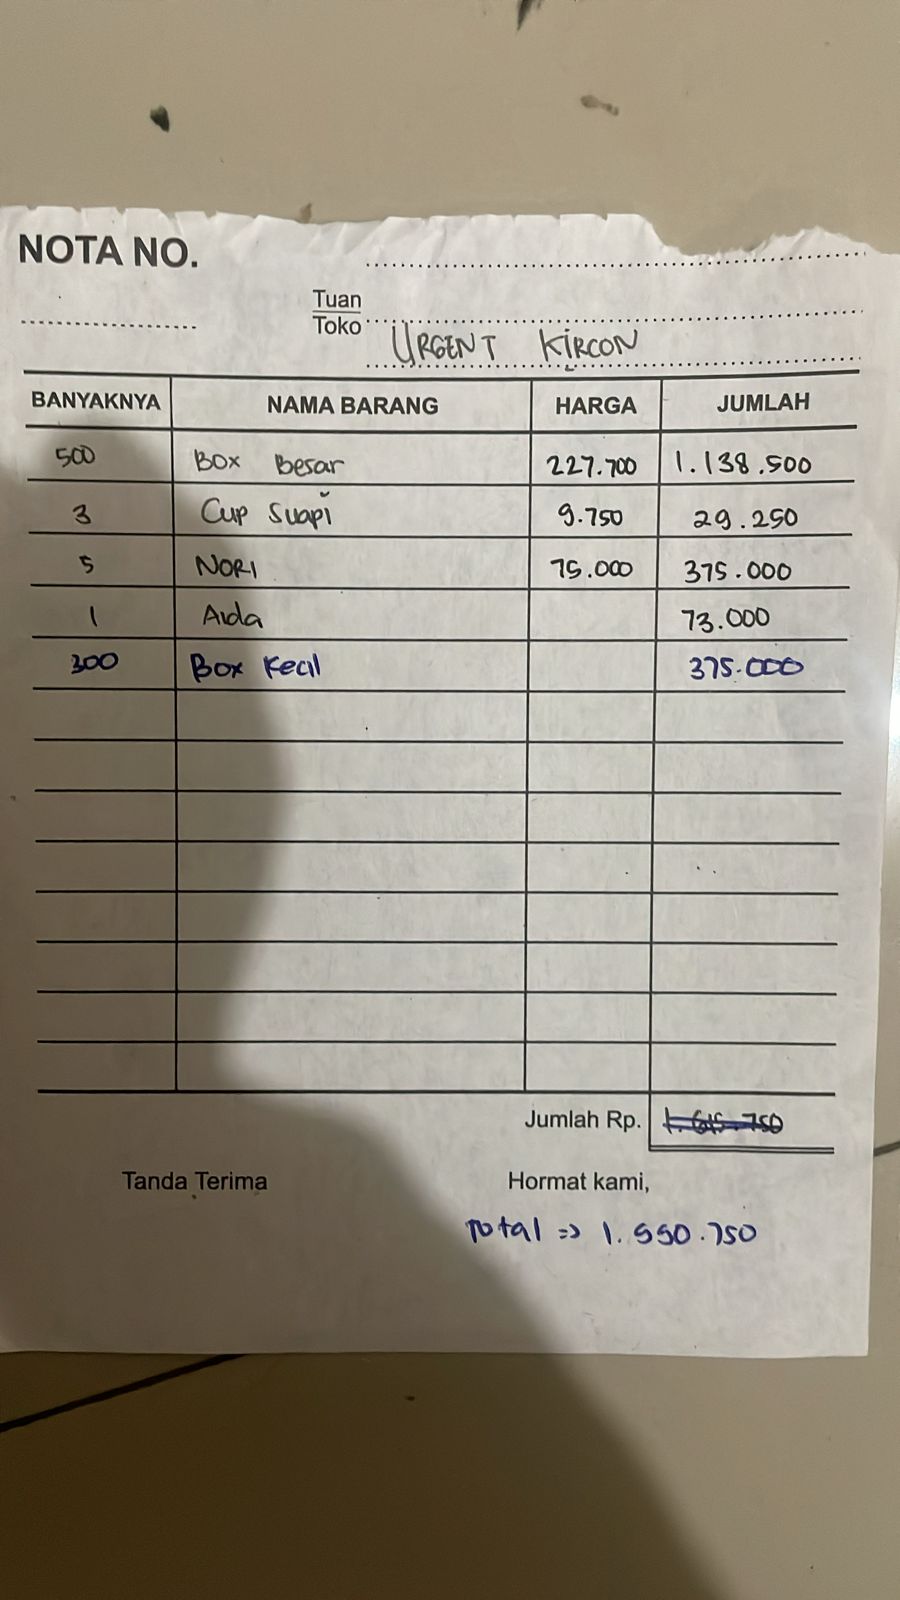 NOTA NO.
Tuan
Toko
URGENT KIRCON
BANYAKNYA NAMA BARANG HARGA JUMLAH
500 Box Besar 227.700 1.138.500
3 Cup Suapi 9.750 29.250
5 NORI 75.000 375.000
1 Aida 73.000
300 Box Kecil 375.000
Jumlah Rp. 1.615.750
Tanda Terima Hormat kami,
Total => 1.550.750